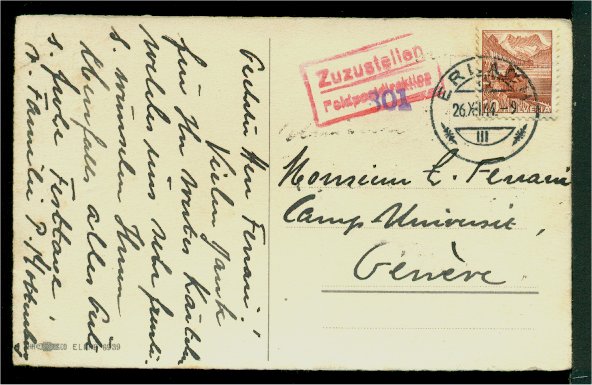 Geehrter Herr Ferrari!
Vielen Dank
für Ihr wertes Kärtchen
welches uns sehr freute.
s. wünschen Ihnen
Ebenfalls alles Gute
s. frohe Festtage
Familie
Zuzustellen
Feldpostdirektion
301
26.XII.44.-9
III
Monsieur E. Ferrari
Camp Universit,
Genève